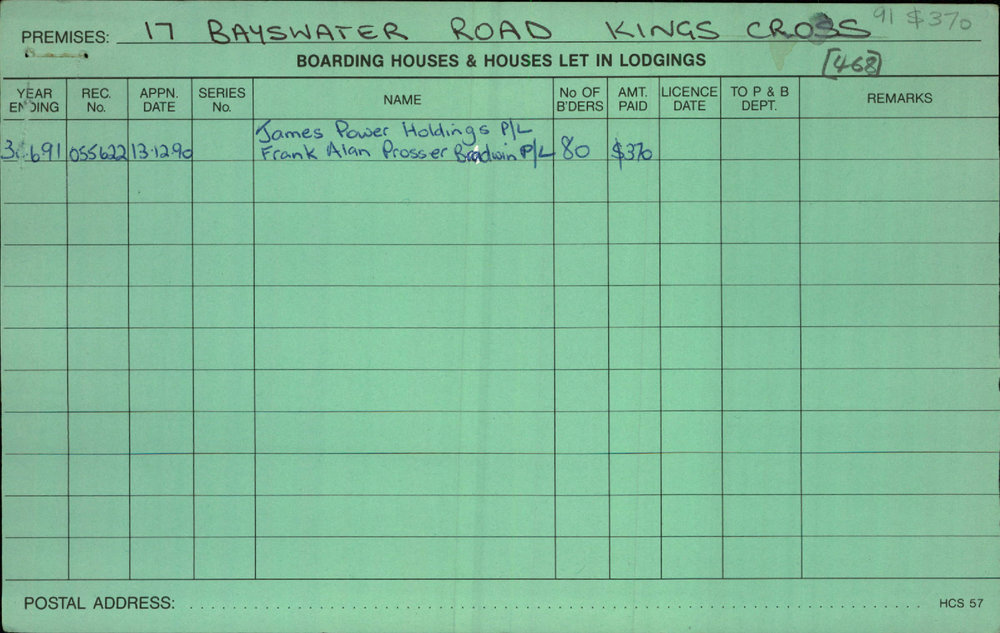 91 $370
PREMISES: 17 BAYSWATER ROAD KINGS CROSS
BOARDING HOUSES & HOUSES LET IN LODGINGS [468]
YEAR ENDING REC. No. APPN. DATE SERIES No. NAME No OF B'DERS AMT. PAID LICENCE DATE TO P & B DEPT. REMARKS
James Power Holdings P/L
30.6.91 055622 13.12.90 Frank Alan Prosser Bradwin P/L 80 $370
POSTAL ADDRESS: HCS 57